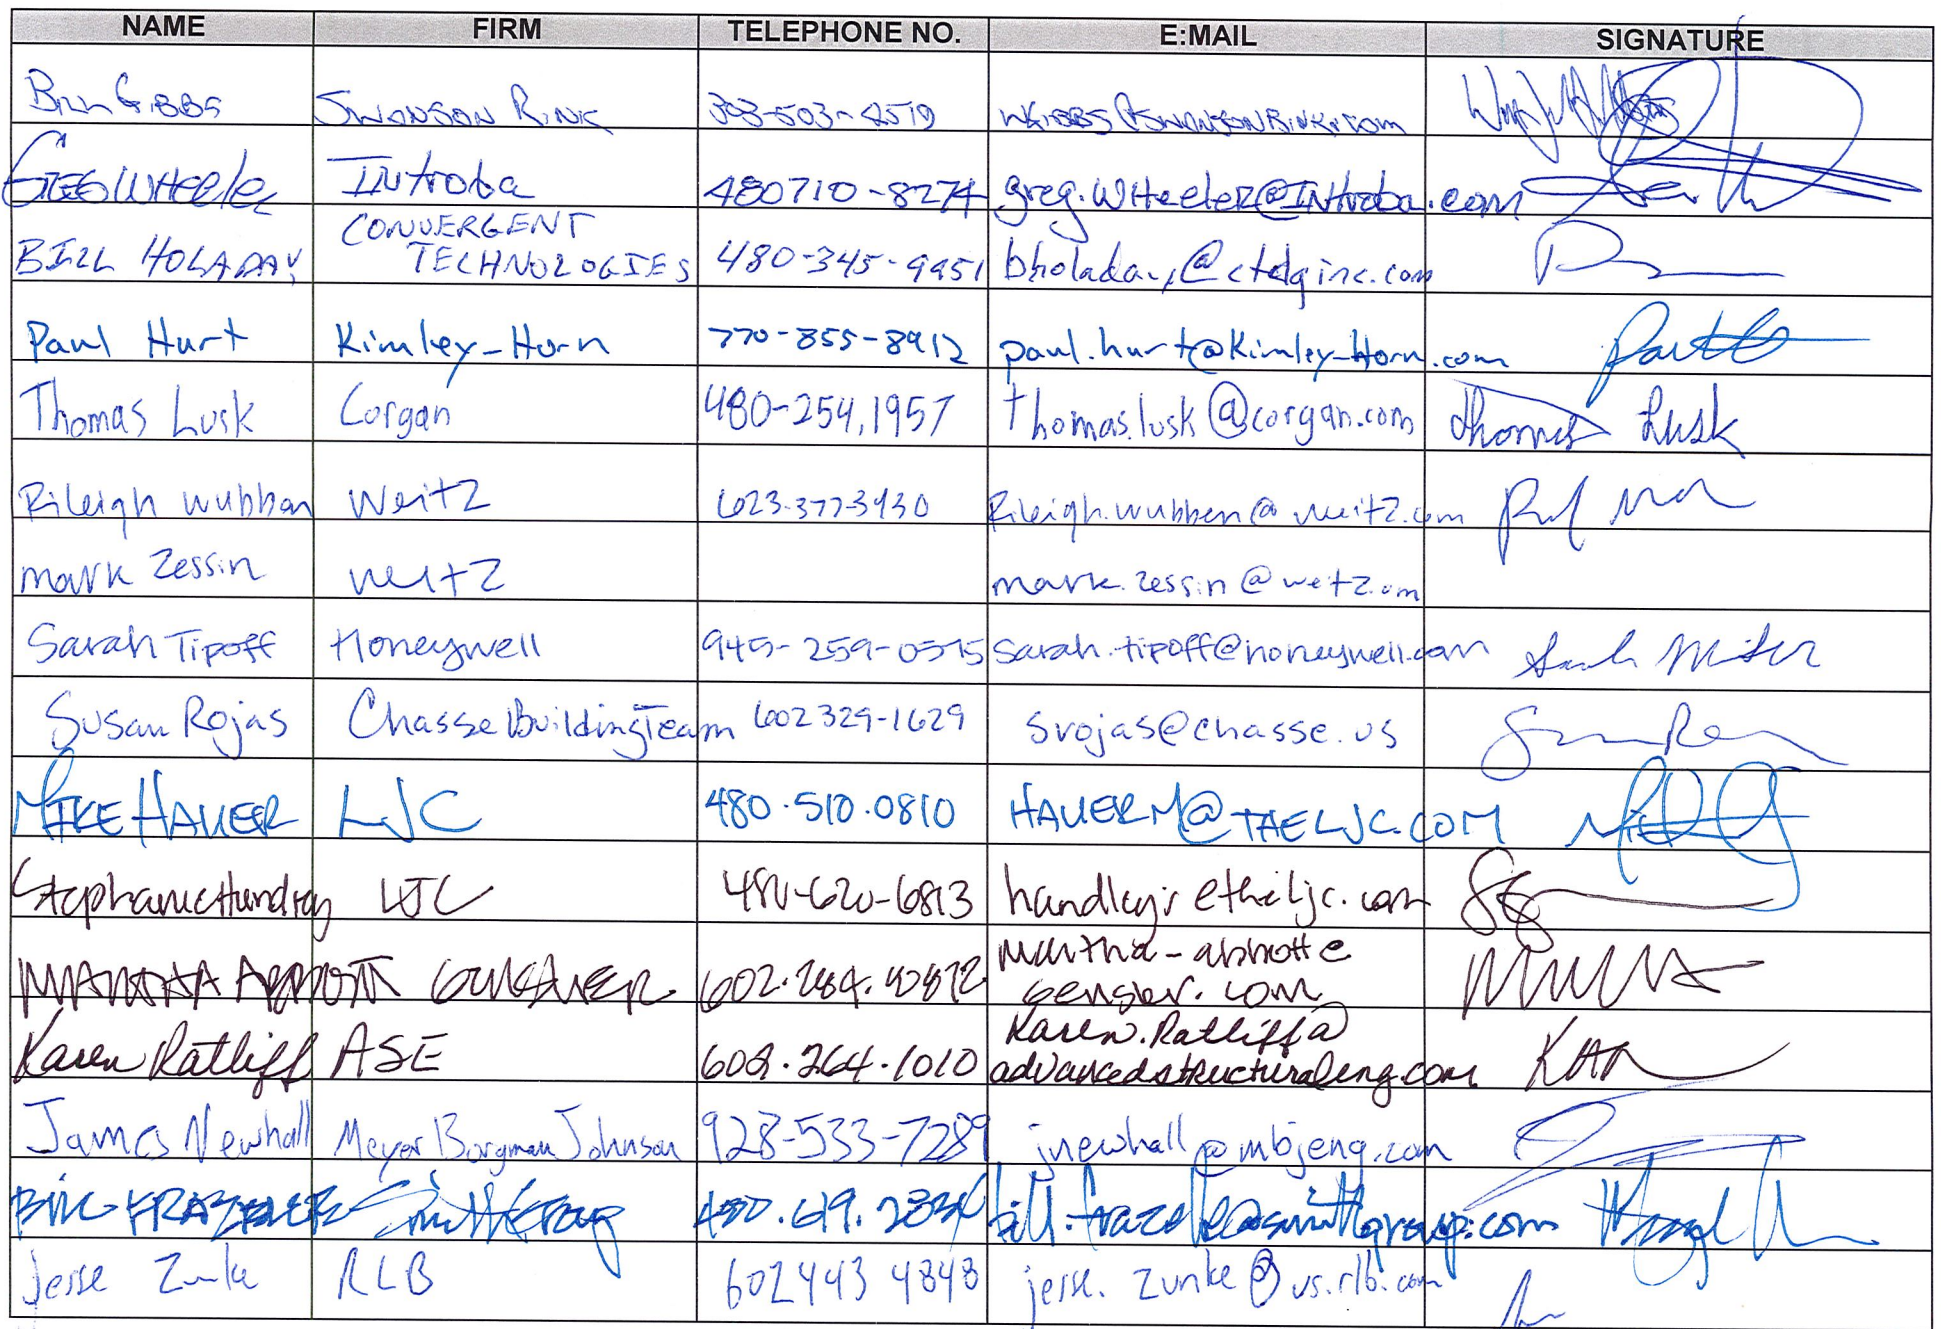 NAME FIRM TELEPHONE NO. E:MAIL SIGNATURE
Bill Gibbs Swanson Rink 303-503-4519 WGibbs@SwansonRink.com
Greg Wheeler Introba 480 710-8274 greg.wheeler@Introba.com
CONVERGENT
BILL HOLADAY TECHNOLOGIES 480-345-9951 bholaday@ctdginc.com
Paul Hurt Kimley-Horn 770-855-8912 paul.hurt@Kimley-Horn.com
Thomas Lusk Corgan 480-254,1957 thomas.lusk@corgan.com Thomas Lusk
Rileigh Wubben Weitz 623-377-3930 Rileigh.wubben@weitz.com
mark Zessin weitz mark.zessin@weitz.com
Sarah Tipoff Honeywell 945-259-0575 sarah.tipoff@honeywell.com
Susan Rojas Chasse Building Team 602 329-1629 srojas@chasse.us
MIKE HAUER LJC 480.510.0810 HAUERM@THELJC.COM
Stephanie LJC 480-620-6813
martha-abbott@
602.284. gensler.com
Karen.Ratliff@
Karen Ratliff ASE 602.264.1010 advancedstructuraleng.com
James Newhall Meyer Borgman Johnson 928-533-7289 jnewhall@mbjeng.com
Bill Smithgroup 480.619. bill.frazelle@smithgroup.com
Jesse Zunke RLB 602 443 4848 jesse.zunke@us.rlb.com